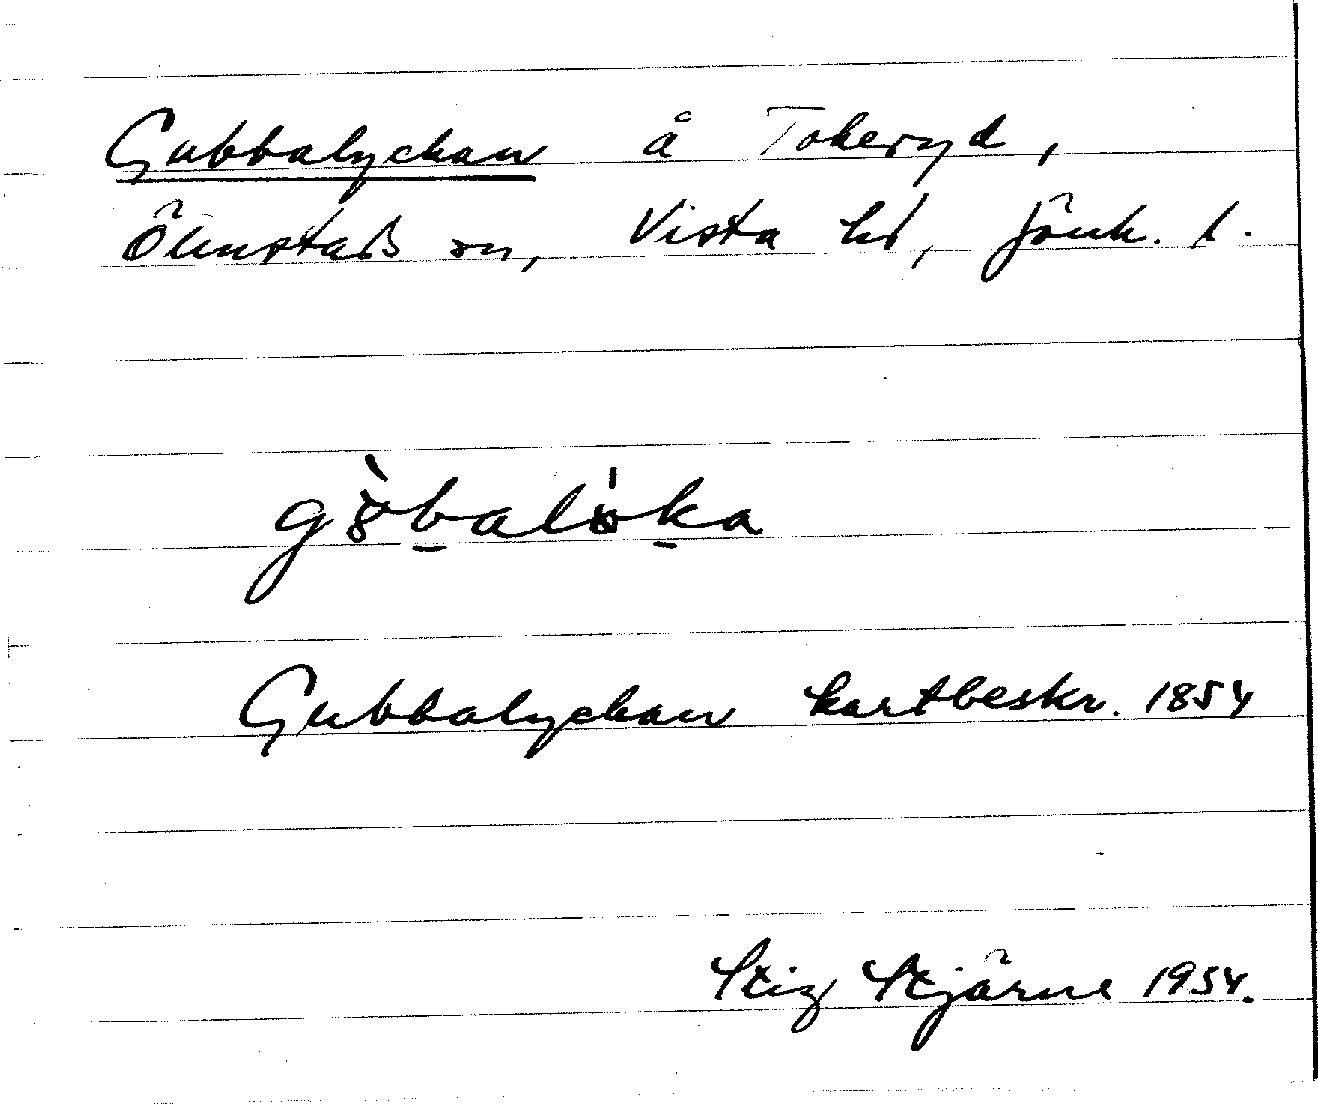 Gubbalyckan å Tokeryd,
Ölmstads sn, Vista hd, Jönk. l.
Gubbalyckan kartbeskr. 1854
Stig Stjärne 1954.